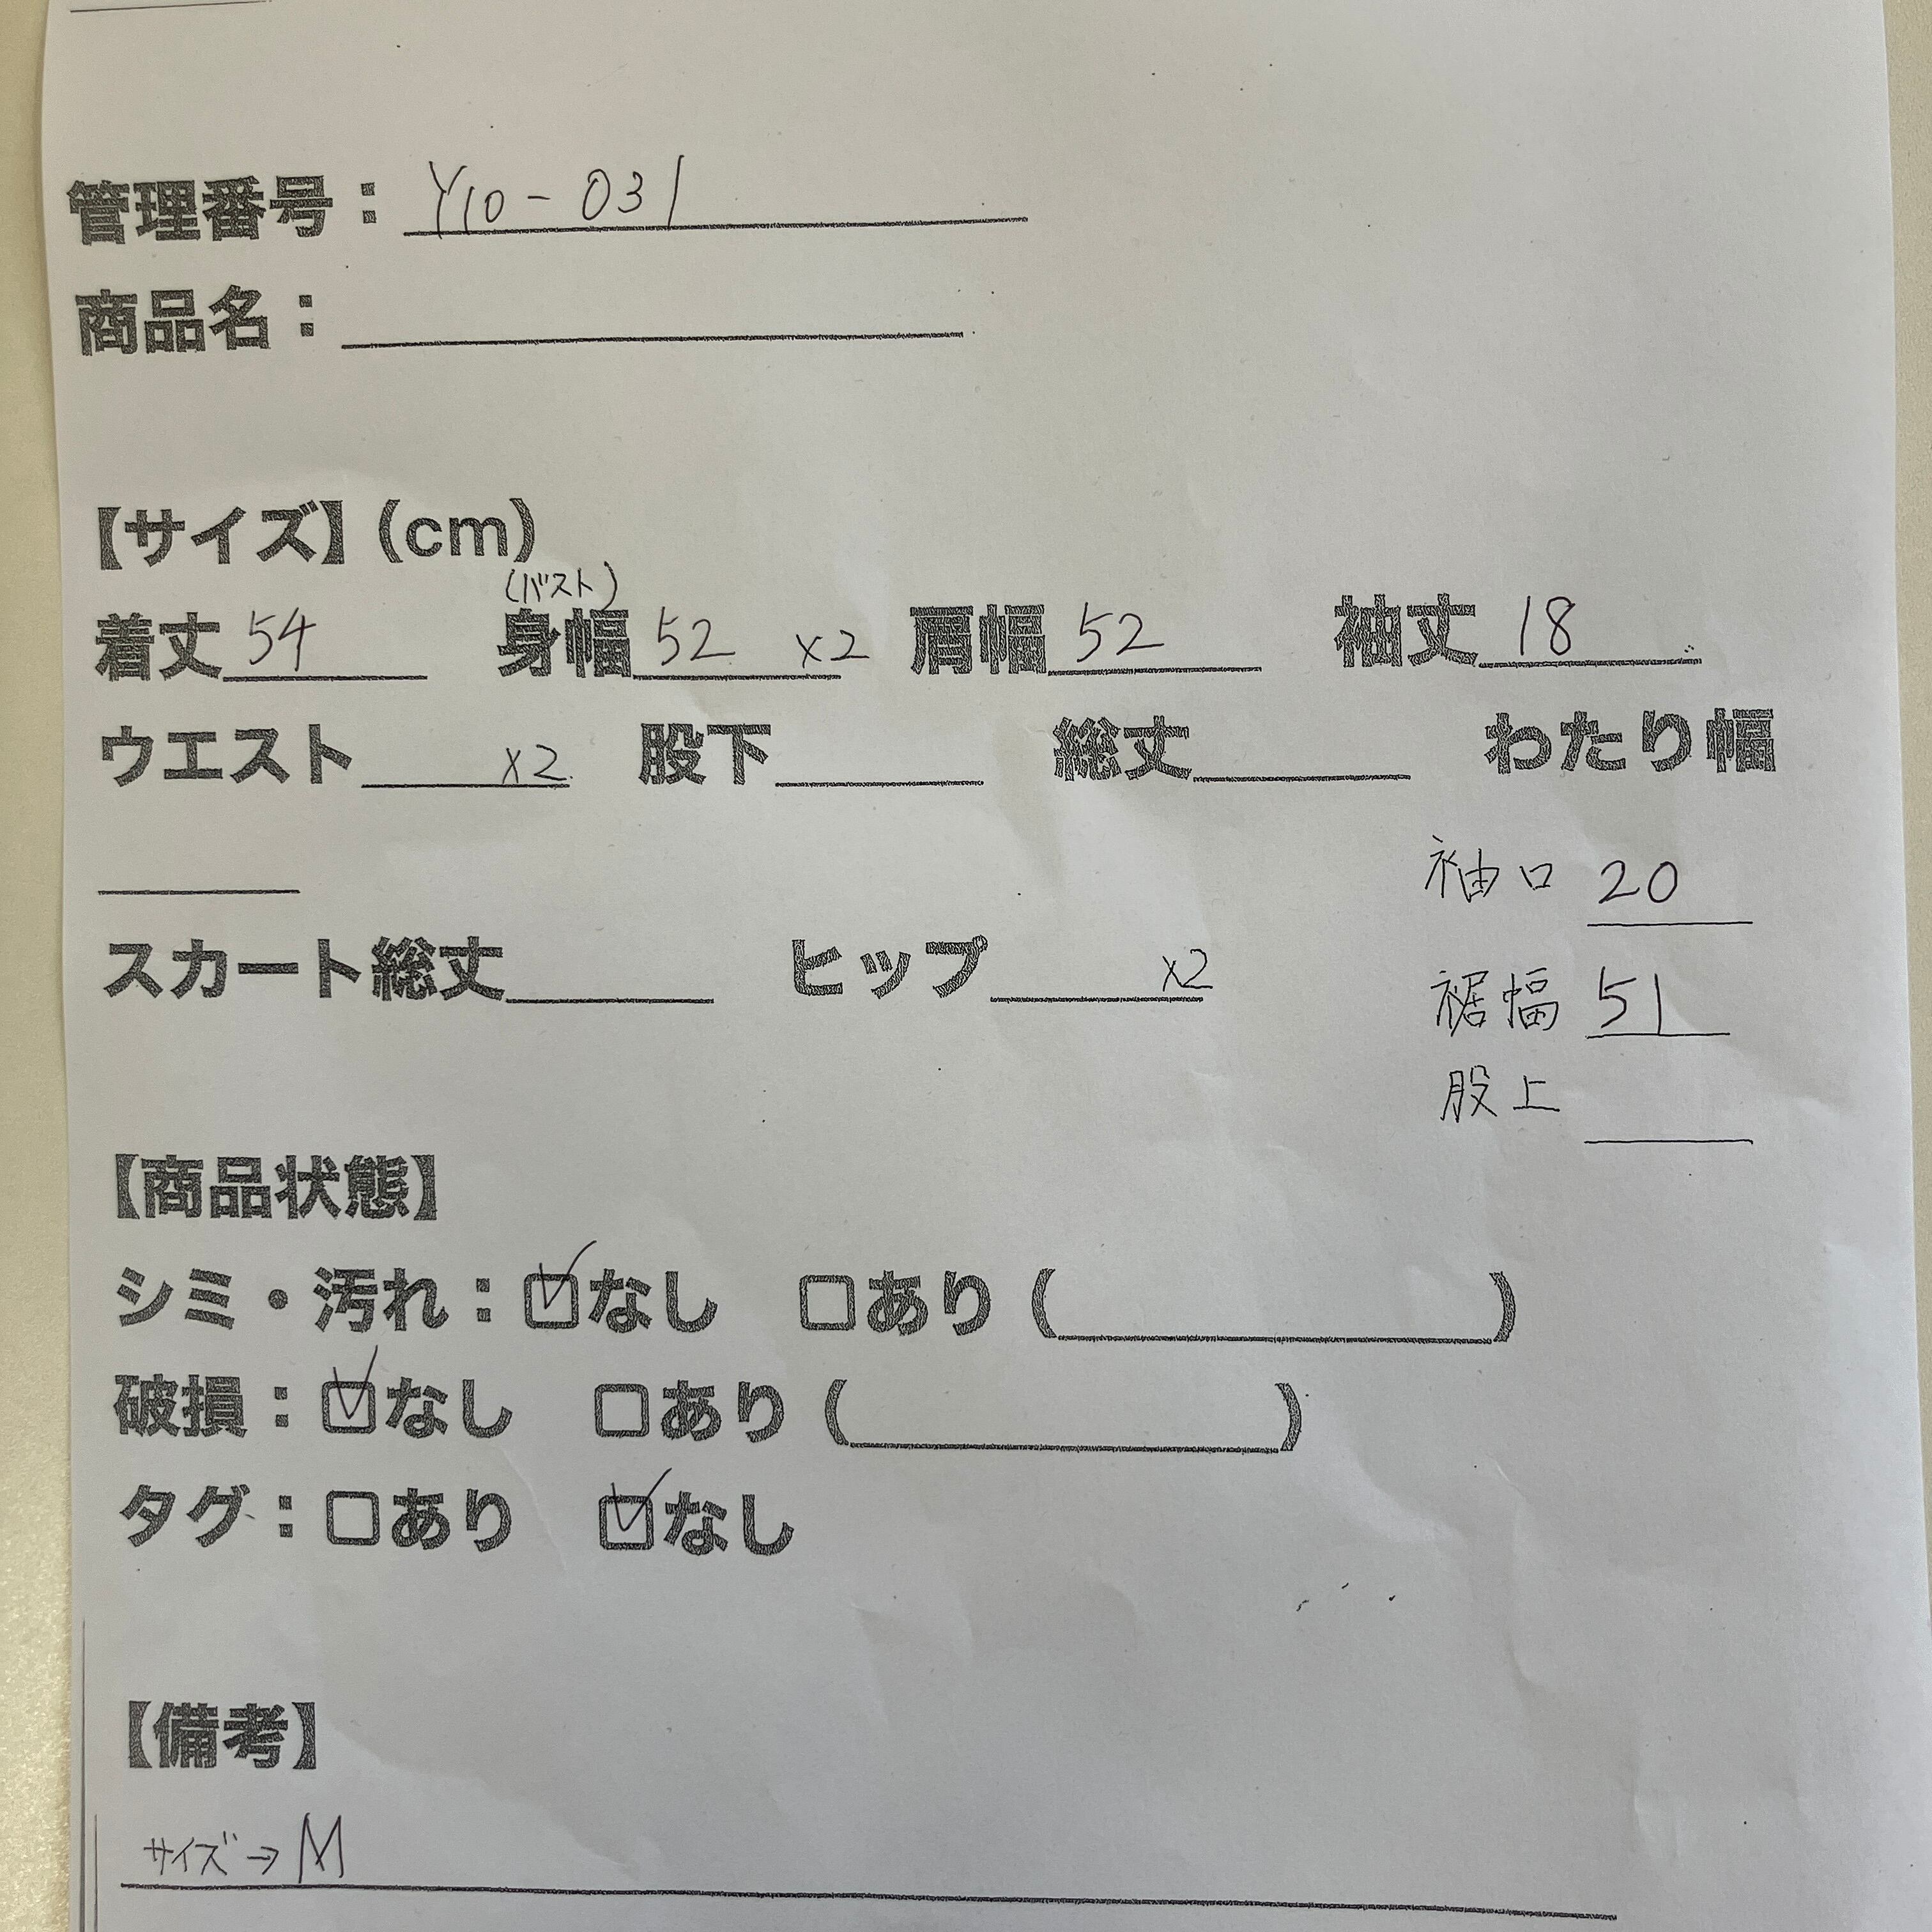 管理番号：Y10-031
商品名：
【サイズ】(cm)
(バスト)
着丈 54 身幅 52 ×2 肩幅 52 袖丈 18
ウエスト ×2 股下 総丈 わたり幅
袖口 20
スカート総丈 ヒップ ×2
裾幅 51
股上
【商品状態】
シミ・汚れ：☑なし □あり ( )
破損：☑なし □あり ( )
タグ：□あり ☑なし
【備考】
サイズ→M